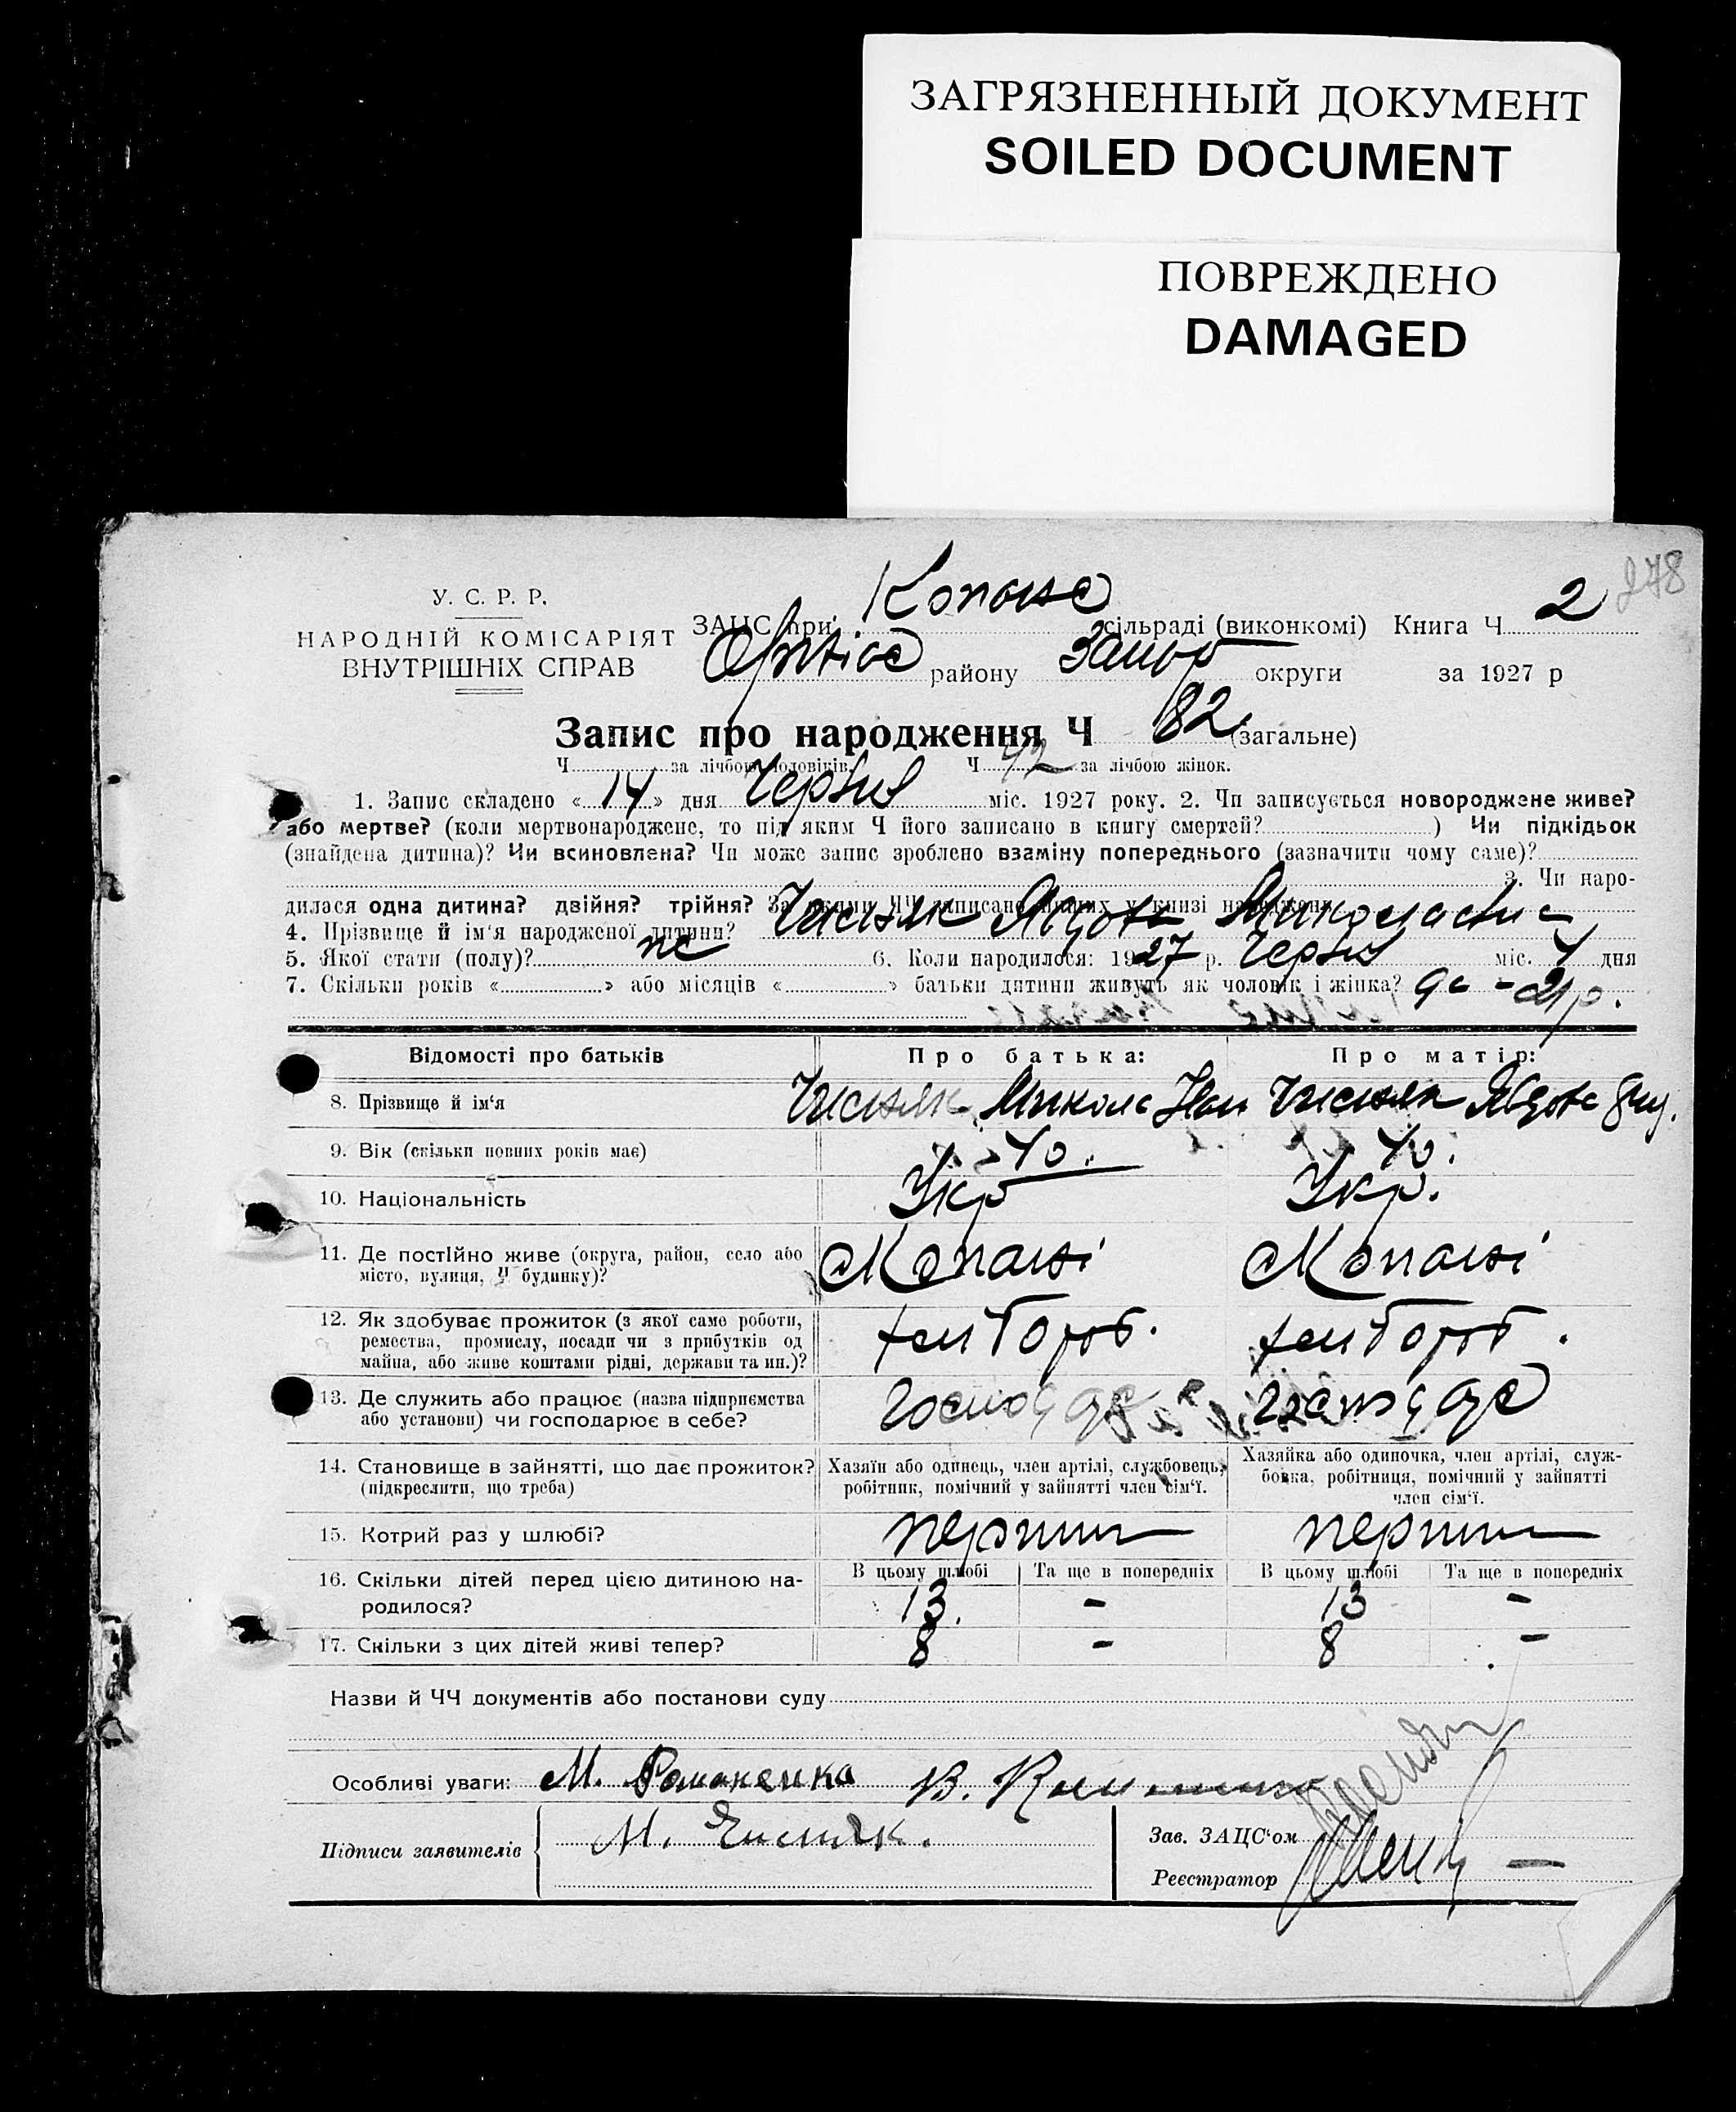 ЗАГРЯЗНЕННЫЙ ДОКУМЕНТ
SOILED DOCUMENT
ПОВРЕЖДЕНО
DAMAGED
278
У. С. Р. Р.
НАРОДНІЙ КОМІСАРІЯТ
ВНУТРІШНІХ СПРАВ
ЗАЦС при сільраді (виконкомі) Книга Ч 2
району Запор округи за 1927 р
Запис про народження Ч 82 (загальне)
Ч за лічбою чоловіків. Ч 42 за лічбою жінок.
1. Запис складено « 14 » дня Червня міс. 1927 року. 2. Чи записується новороджене живе?
або мертве? (коли мертвонароджене, то під яким Ч його записано в книгу смертей? ) Чи підкідьок
(знайдена дитина)? Чи всиновлена? Чи може запис зроблено взаміну попереднього (зазначити чому саме)?
3. Чи наро-
дилася одна дитина? двійня? трійня? За якими ЧЧ записано інших у книзі народжень
4. Прізвище й ім'я народженої дитини? Чисняк Явдоха Миколаевна
5. Якої стати (полу)? же 6. Коли народилося: 1927 р. Червня міс. 4 дня
7. Скільки років « » або місяців « » батьки дитини живуть як чоловік і жінка?
Відомості про батьків Про батька: Про матір:
8. Прізвище й ім'я Чисняк Микола Іван Чисняк Явдоха
9. Вік (скільки повних років має) 40. 40.
10. Національність Укр Укр.
11. Де постійно живе (округа, район, село або
місто, вулиця, Ч будинку)?
Копані Копані
12. Як здобуває прожиток (з якої само роботи,
ремества, промислу, посади чи з прибутків од
майна, або живе коштами рідні, держави та ин.)?
хлибороб. хлибороб.
13. Де служить або працює (назва підприємства
або установи) чи господарює в себе?
14. Становище в зайнятті, що дає прожиток?
(підкреслити, що треба)
Хазяїн або одинець, член артілі, службовець,
робітник, помічний у зайнятті член сім'ї.
Хазяйка або одиночка, член артілі, служ-
бовка, робітниця, помічний у зайнятті
член сім'ї.
15. Котрий раз у шлюбі? перший перший
16. Скільки дітей перед цією дитиною на-
родилося?
В цьому шлюбі Та ще в попередніх В цьому шлюбі Та ще в попередніх
13. - 13 -
17. Скільки з цих дітей живі тепер? 8 - 8 -
Назви й ЧЧ документів або постанови суду
Особливі уваги: М. Романенка В.
Підписи заявителів М. Чисняк.
Зав. ЗАЦС'ом
Реєстратор